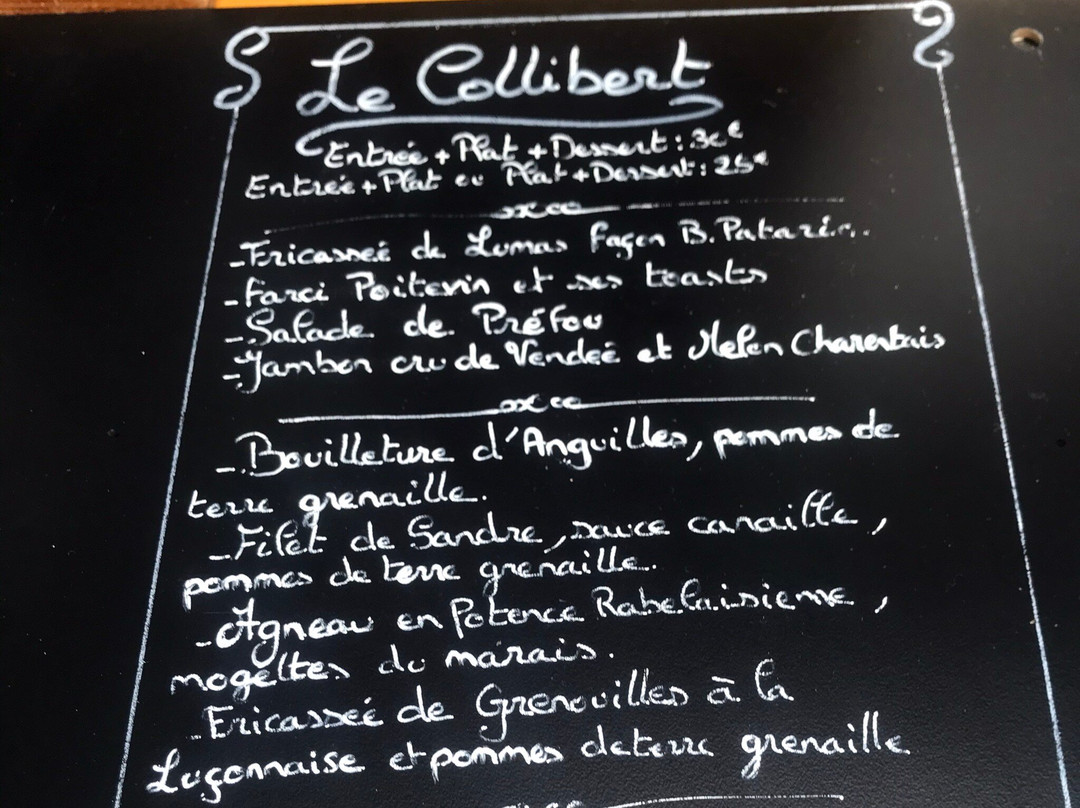 Le Collibert
Entrée + Plat + Dessert : 30€
Entrée + Plat ou Plat + Dessert : 25€
- Fricassée de Lumas façon B. Patarin.
- Farci Poitevin et ses toasts
- Salade de Préfou
- Jambon cru de Vendée et Melon Charentais
- Bouilleture d'Anguilles, pommes de
terre grenaille.
- Filet de Sandre, sauce canaille,
pommes de terre grenaille.
- Agneau en Potence Rabelaisienne,
mogettes du marais.
- Fricassée de Grenouilles à la
Luçonnaise et pommes de terre grenaille